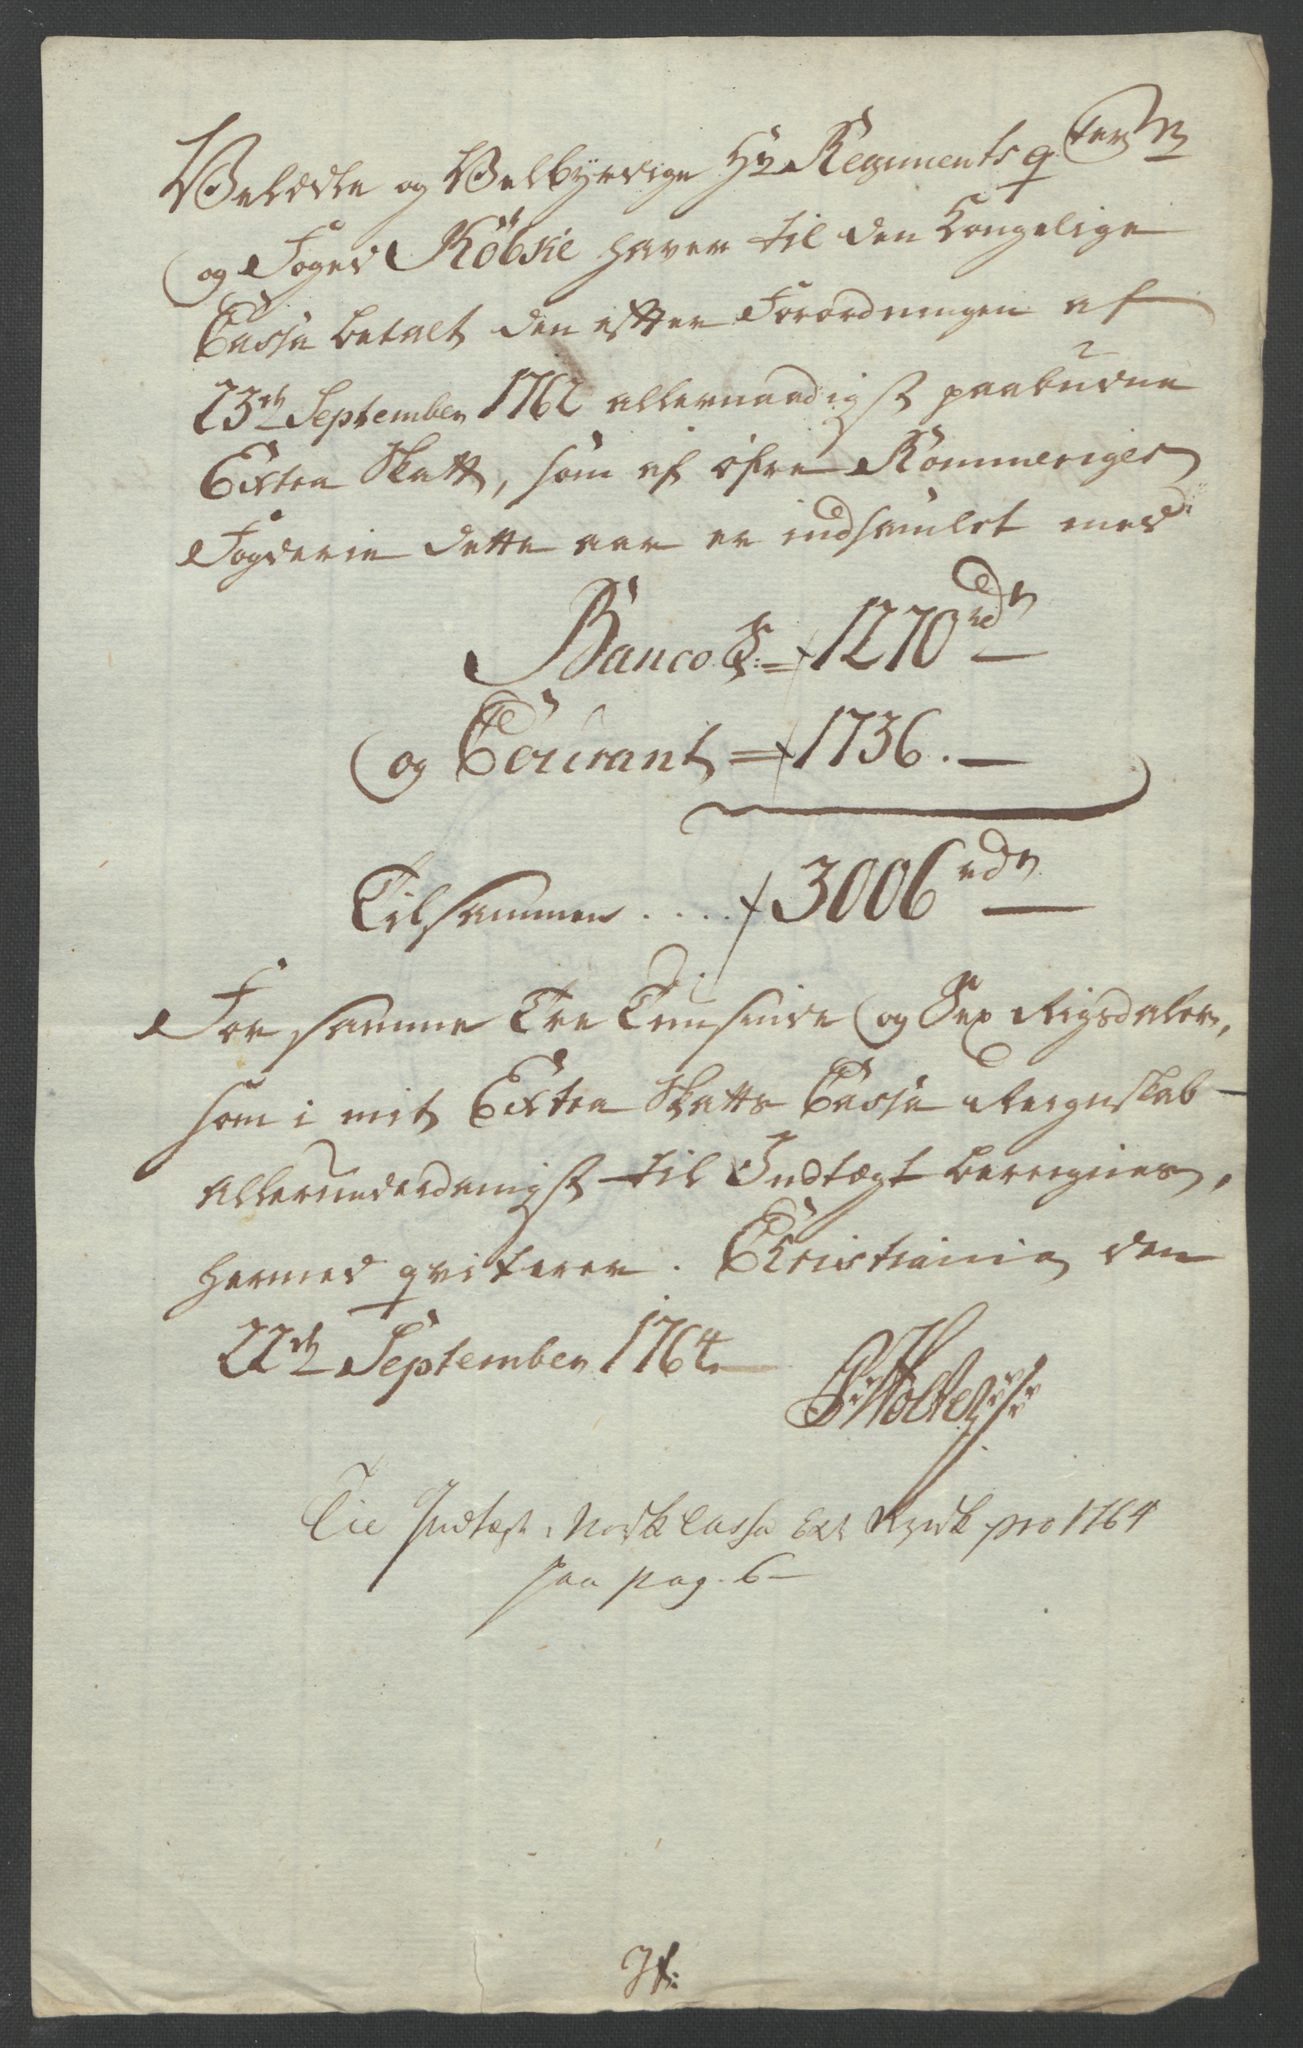 Velædle og Velbyrdige Hr Regiments qterM
og Foged Röbke haver til den Kongelige
Cassa betalt den efter Forordningen af
23de September 1762 allernaadigst paabudne
Extra Skatt, som af öfre Rommeriges
Fogderie dette aar er indsamlet med
Banco S: = 1270 rdr —
og Courant = 1736. —
Tilsammen .... 3006 rdr —
For samme Tre Tusinde og Sex Rigsdaler,
som i mit Extra Skatts Cassa Reignskab
allerunderdanigst til Indtægt bereignes,
hermed qviterer. Christiania den
22de September 1764.
Holter
Til Indtægt i Norsk Cassa Ext pro 1764
paa pag. 6 —